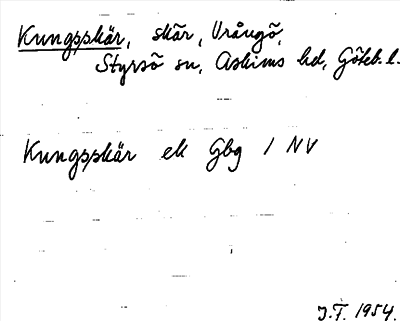 Kungsskär, skär, Vrångö,
Styrsö sn, Askims hd, Göteb. l.
Kungsskär ek Gbg 1 NV
J.T. 1954.